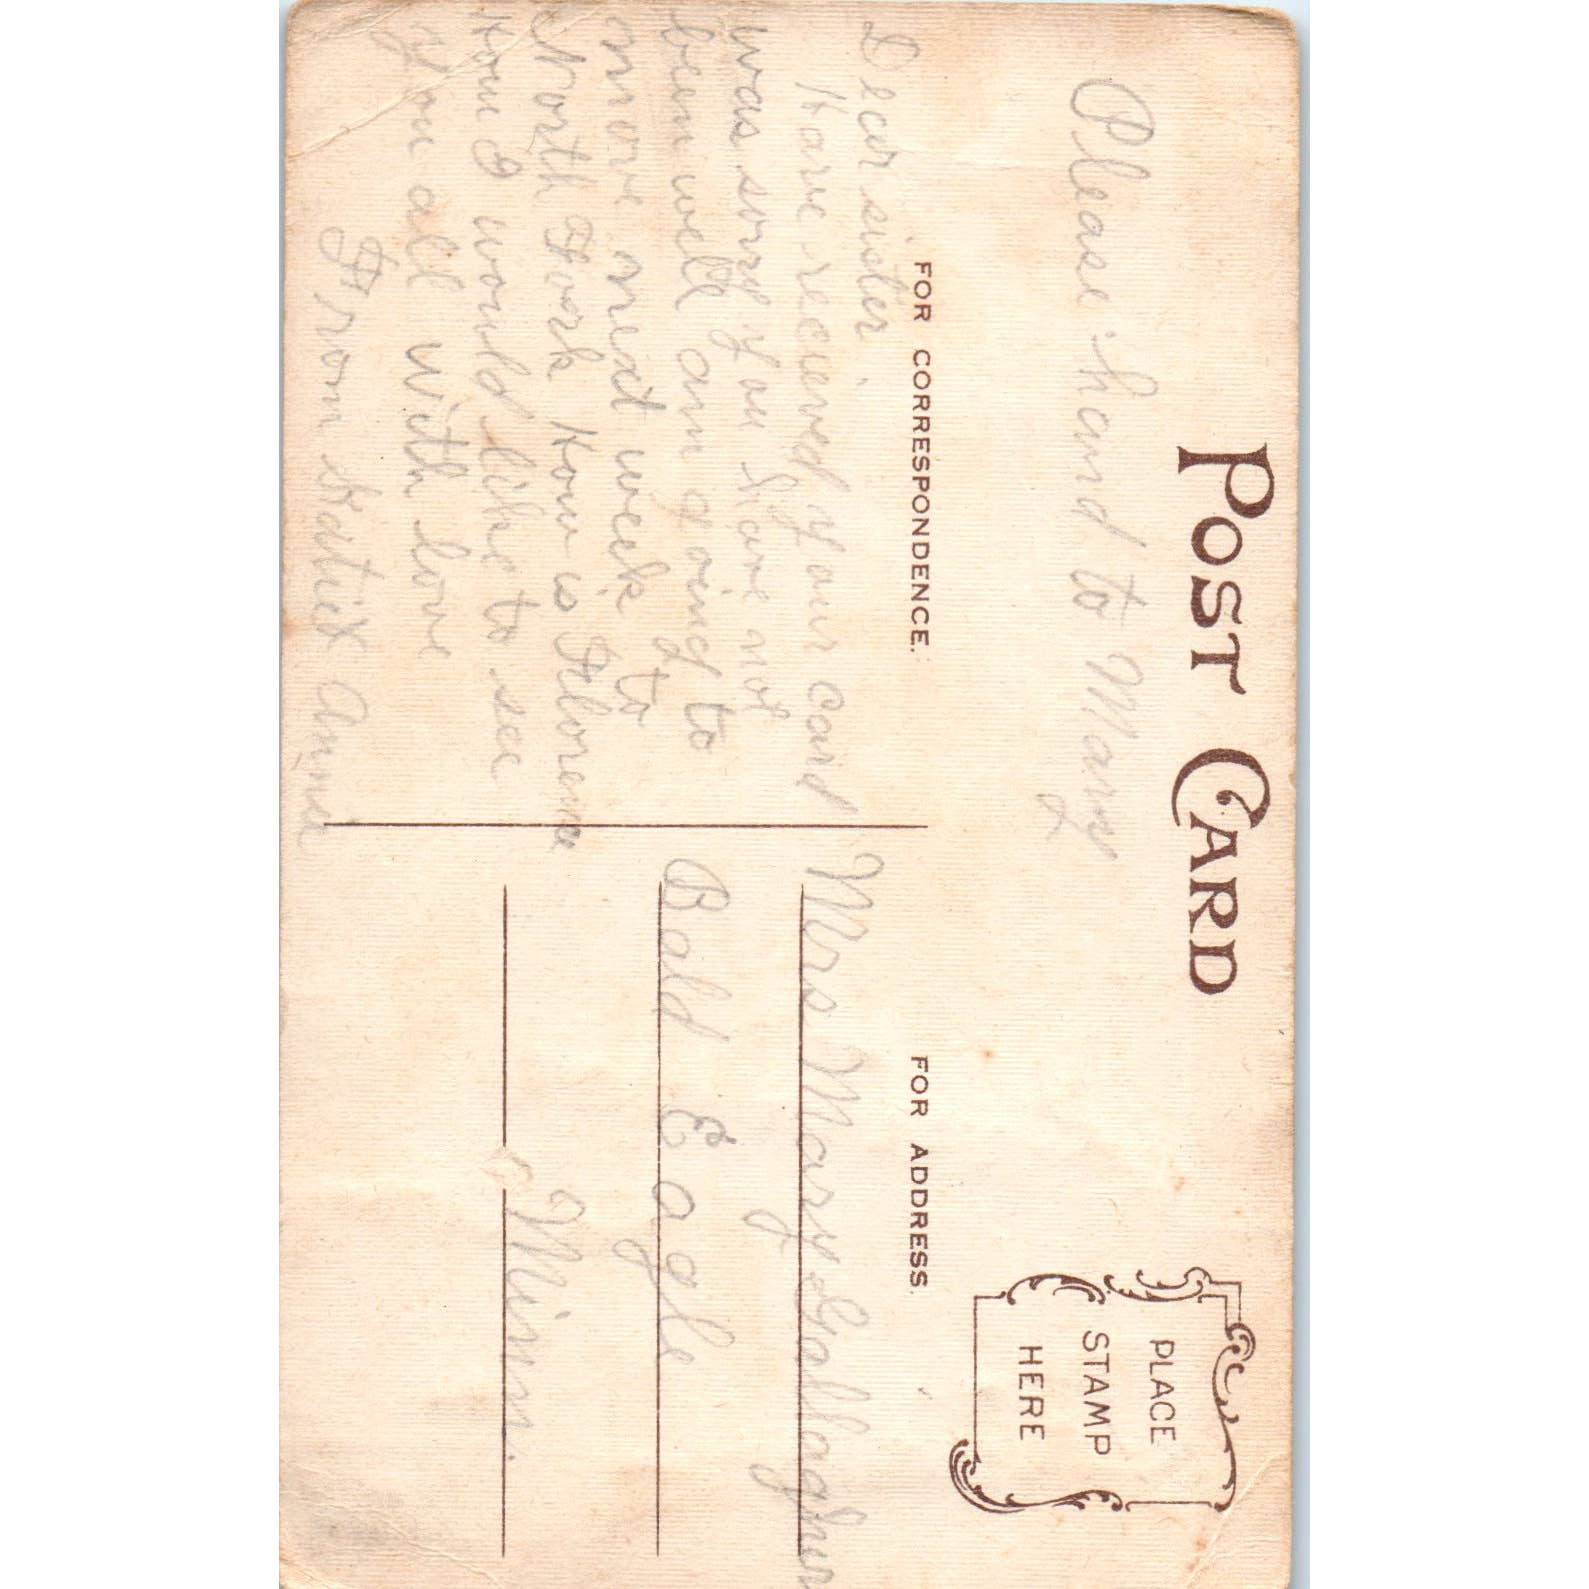 POST CARD
Please hand to Mary
FOR CORRESPONDENCE.
Dear sister
Have recieved your card
was sorry you have not
been well am going to
move next week to
North Fork How is Florence
How I would like to see
you all with love
From Annie
FOR ADDRESS.
PLACE
STAMP
HERE
Mrs Mary Gallagher
Bald Eagle
Minn.